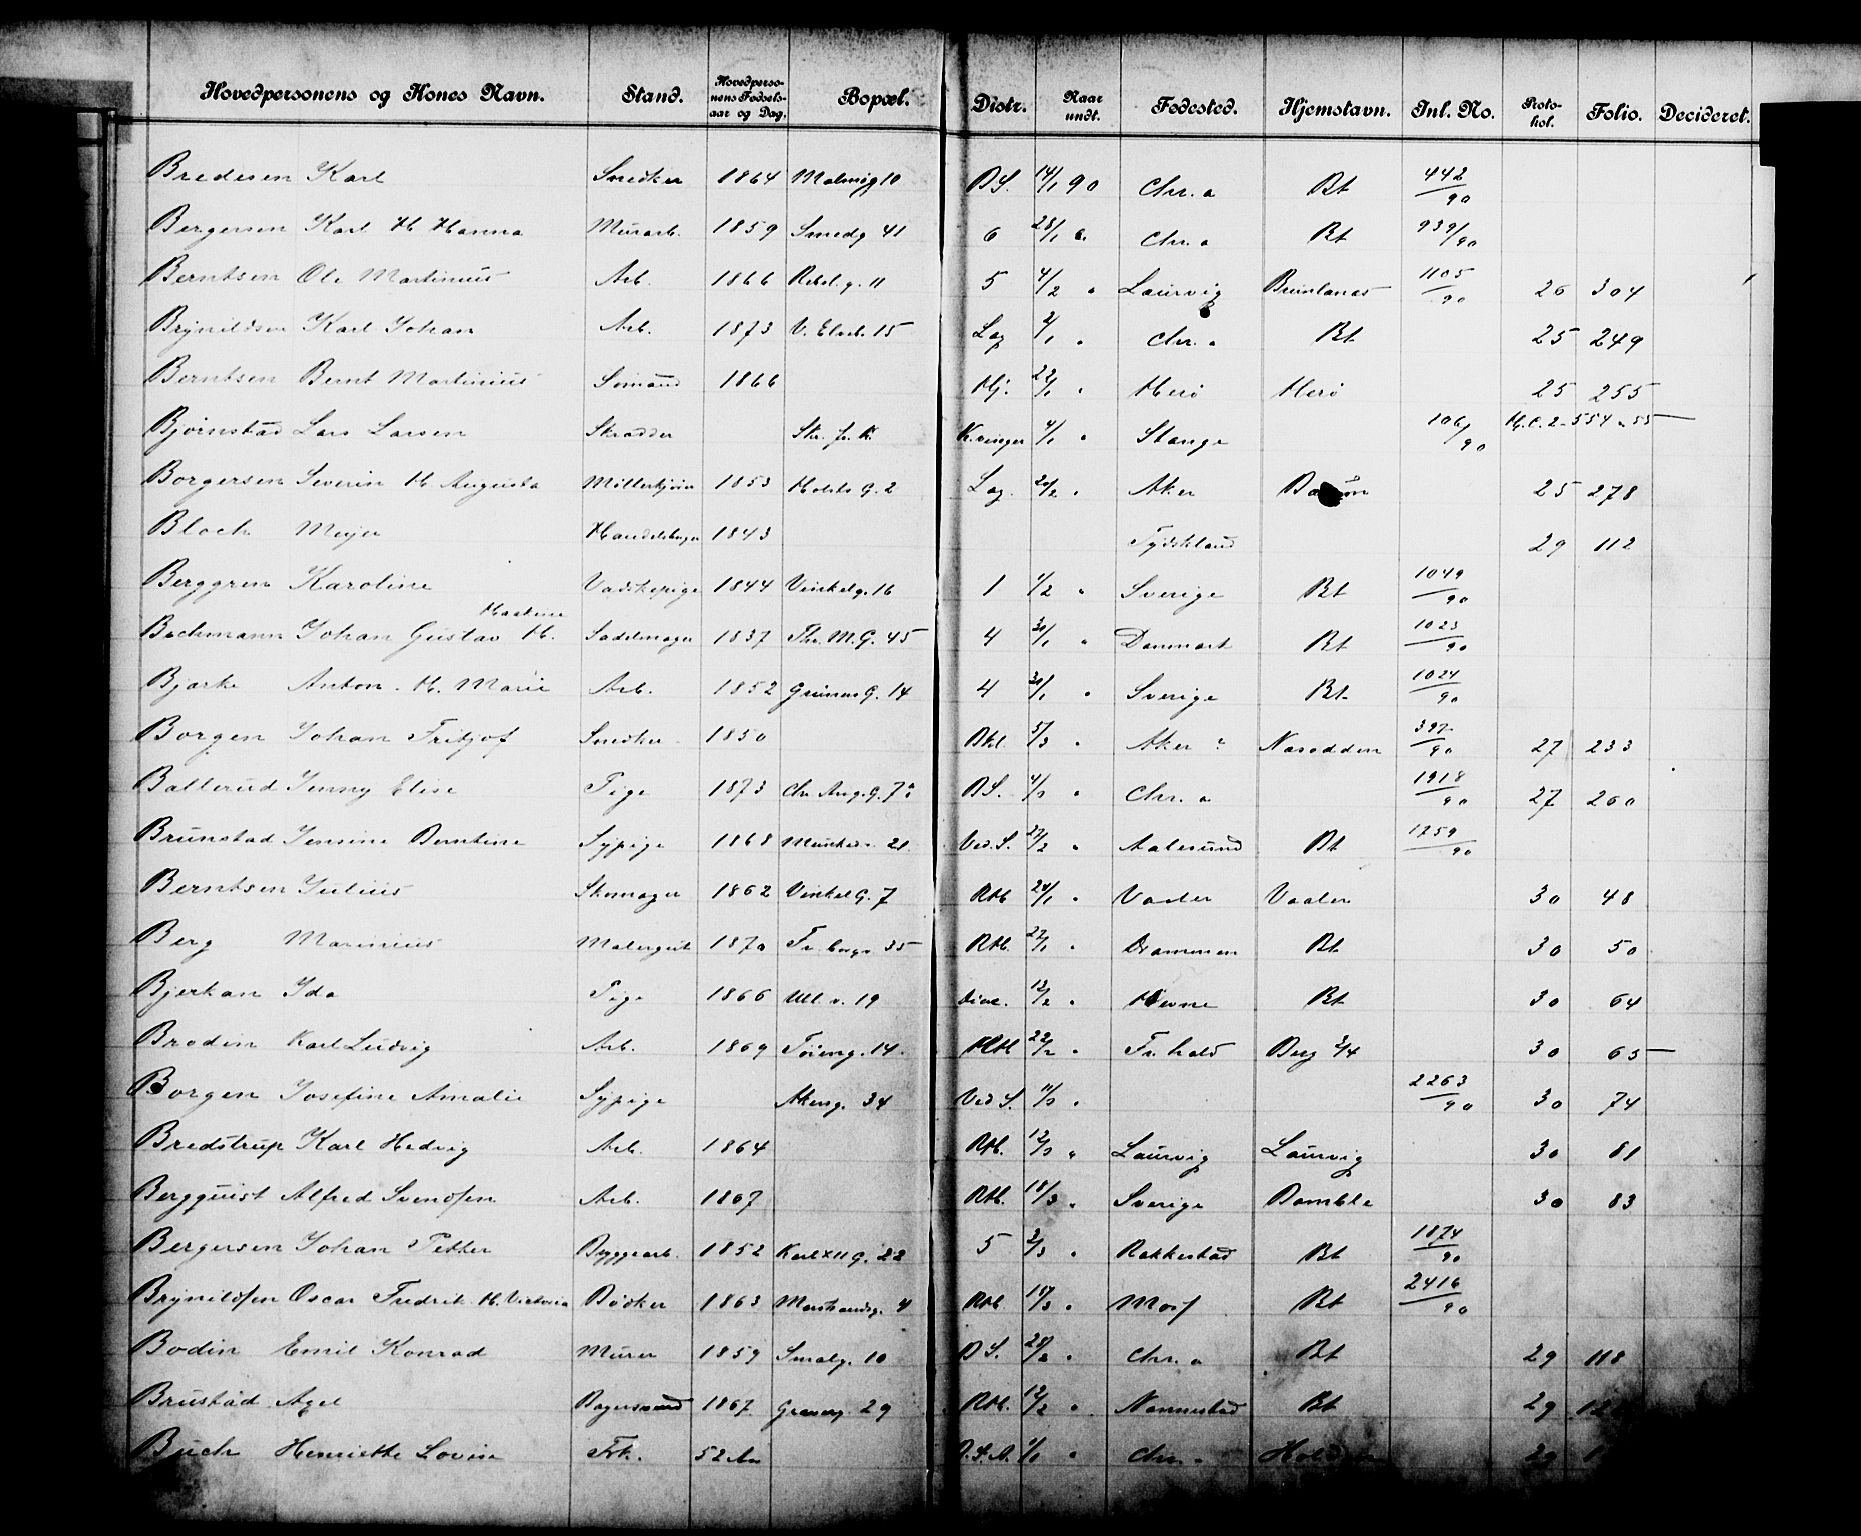 Hovedpersonens og Kones Navn. Stand. Hovedpersonens Fødselsaar og Dag. Bopæl. Distr. Naar undt. Fødested. Hjemstavn. Inl. No. Protokol. Folio. Decideret.
Bredesen Karl Snedker 1864 Malmøg 10 B S. 14/1 90 Chr. a Bt 442/90
Bergersen Karl H Hanna Murarb. 1859 Smedg 41 6 28/1 Chr. a Bt 939/90
Berntsen Ole Martinius Arb. 1866 Rebsl. g. 11 5 4/2 " Laurvig Brunlanæs 1105/90 26 304
Brynildsen Karl Johan Arb. 1873 V. Elveb. 15 Lag 2/1 " Chr. a Bt 25 249
Berntsen Bernt Martinius Sømand 1866 Hj. 22/1 " Herø Herø 25 255
Bjørnstad Lars Larsen Skrædder Kvinger 4/1 " Stange 106/90 H. C. 2 - 554 - 55
Borgersen Severin H Augusta Møllerkjører 1853 Holsts G. 2 Lag. 20/2 " Aker 25 278
Bloch Meyer 1843 Tydskland 29 112
Berggren Karoline Vadskepige 1844 Vinkelg. 16 1 1/2 " Sverige Bt 1049/90
Bachmann Johan Gustav H. Martine Sadelmager 1837 Thv. M. G. 45 4 30/1 " Danmark Bt 1023/90
Bjarke Anton. H. Marie Arb. 1852 Grüners G. 14 4 30/1 " Sverige Bt 1024/90
Borgen Johan Fritjof Snedker 1850 Bkl. 5/3 " Aker ? Næsodden 397/90 27 233
Ballerud Jenny Elise Pige 1873 Chr. Aug. G. 7 B S. 4/3 " Chr. a 1918/90 27 260
Brunstad Jensine Berntine Sypige 1868 Munked. 21 Ved. S. 27/2 " Aalesund Bt 1759/90
Berntsen Julius Skomager 1862 Vinkel G. 7 Rtb 24/1 " Vaaler Vaaler 30 48
Berg Marinius Malersvd 1870 Fr. borgv 35 Rtb. 27/1 " Drammen Bt 30 50
Bjerkan Ida Pige 1866 Ull. v. 19 Diac. 12/2 " Hevne Bt 30 64
Brodin Karl Ludvig Arb. 1869 Tøieng. 14. Rtb 22/2 " Fr. hald Berg 3/4 30 65
Borgen Josefine Amalie Sypige Akersg. 34 Ved S. 11/3 " 2263/90 30 74
Bredstrup Karl Hedvig Arb. 1864 Rtb. 12/3 " Laurvig Laurvig 30 81
Bergquist Alfred Svendsen Arb. 1867 Rtb. 18/3 " Sverige Bamble 30 83
Bergersen Johan Petter Byggearb. 1852 Karl XII G. 22 5 3/3 " Rakkestad Bt 1874/90
Brynildsen Oscar Fredrik H. Victoria Bødker 1863 Marstrandsg. 4 Rtb 15/3 " Moss Bt 2416/90
Bodin Emil Konrad Murer 1859 Smalg. 10 B S. 28/2 " Chr. a Bt 29 118
Brustad Axel Bagersvend 1867 Grønneg. 29 Rtb. 12/2 " Nannestad Bt 29
Buch Henriette Lovise Frk. 52 Aar 1/1 " Chr. a 29